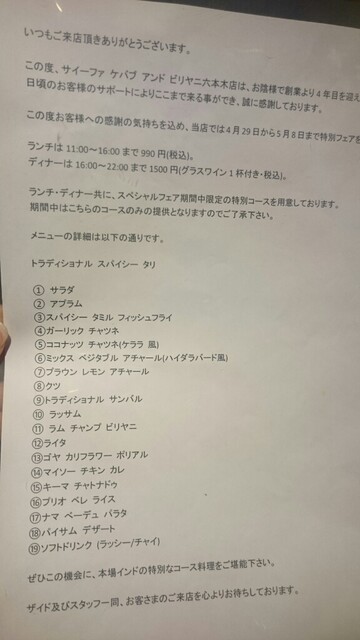 いつもご来店頂きありがとうございます。
この度、サイーファ ケバブ アンド ビリヤニ六本木店は、お陰様で創業より4年目を迎え
日頃のお客様のサポートによりここまで来る事ができ、誠に感謝しております。
この度お客様への感謝の気持ちを込め、当店では4月29日から5月8日まで特別フェアを
ランチは 11:00～16:00 まで 990 円(税込)。
ディナーは 16:00～22:00 まで 1500 円(グラスワイン1杯付き・税込)。
ランチ・ディナー共に、スペシャルフェア期間中限定の特別コースを用意しております。
期間中はこちらのコースのみの提供となりますのでご了承下さい。
メニューの詳細は以下の通りです。
トラディショナル スパイシー タリ
① サラダ
② アプラム
③スパイシー タミル フィッシュフライ
④ガーリック チャツネ
⑤ココナッツ チャツネ(ケララ 風)
⑥ミックス ベジタブル アチャール(ハイダラバード風)
⑦ブラウン レモン アチャール
⑧クツ
⑨トラディショナル サンバル
⑩ ラッサム
⑪ ラム チャンプ ビリヤニ
⑫ライタ
⑬ゴヤ カリフラワー ポリアル
⑭マイソー チキン カレ
⑮キーマ チャトナドゥ
⑯プリオ ペレ ライス
⑰ナマ ベーデュ パラタ
⑱パイサム デザート
⑲ソフトドリンク (ラッシー/チャイ)
ぜひこの機会に、本場インドの特別なコース料理をご堪能下さい。
ザイド及びスタッフ一同、お客さまのご来店を心よりお待ちしております。